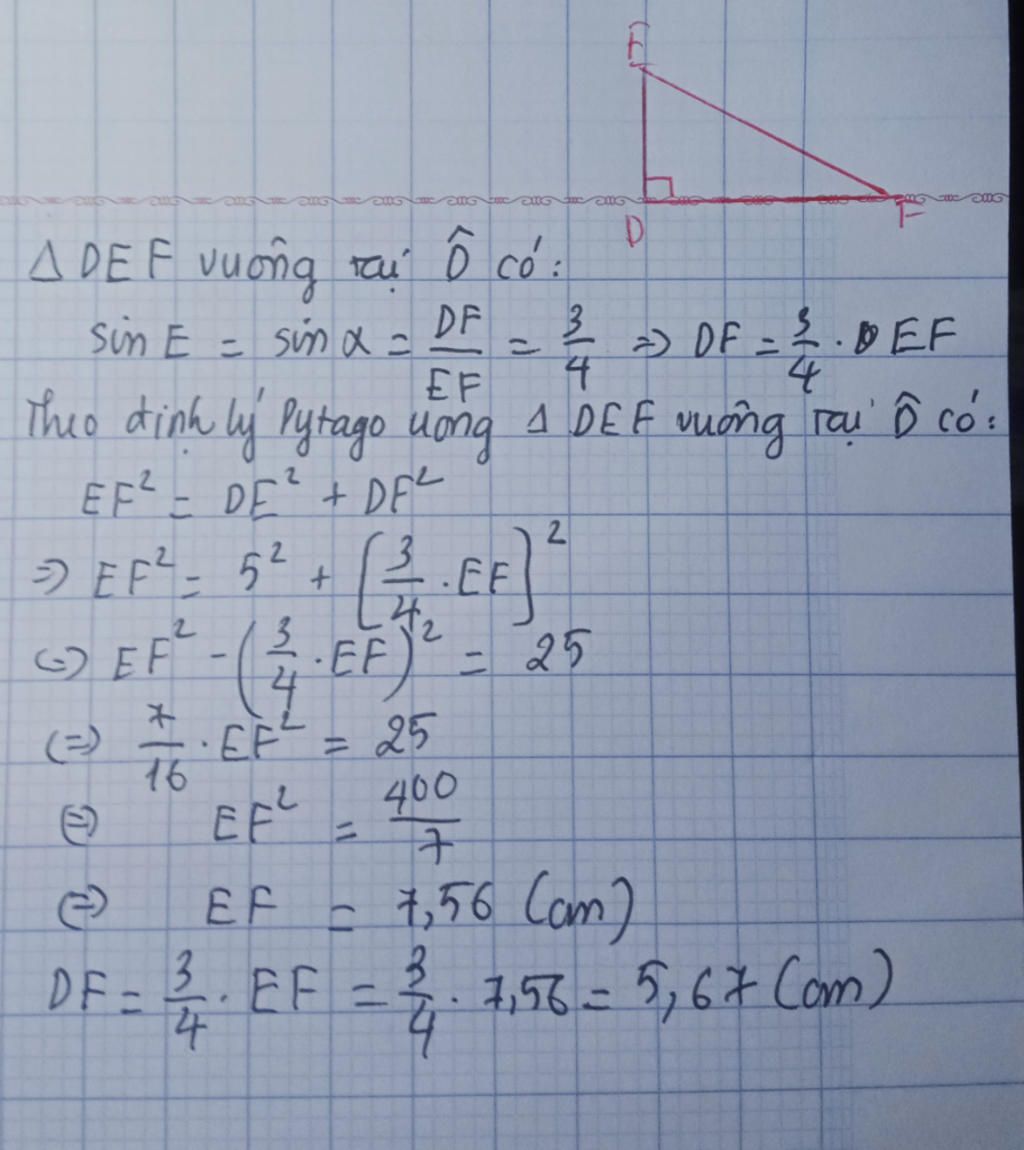 E
D
F
Δ DEF vuông tại D̂ có:
sin E = sin α = DF/EF = 3/4 => DF = 3/4 . EF
Theo định lý Pytago trong Δ DEF vuông tại D̂ có:
EF² = DE² + DF²
=> EF² = 5² + [3/4 . EF]²
<=> EF² - (3/4 . EF)² = 25
<=> 7/16 . EF² = 25
<=> EF² = 400/7
<=> EF = 7,56 (cm)
DF = 3/4 . EF = 3/4 . 7,56 = 5,67 (cm)